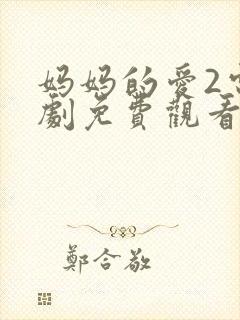 妈妈的爱2
劇免費觀看
鄭合敬